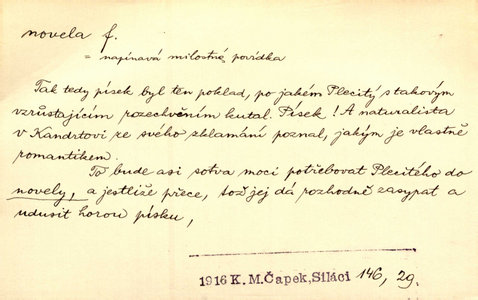 novela f.
= napínavá milostná povídka
Tak tedy písek byl ten poklad, po jakém Plecitý s takovým
vzrůstajícím rozechvěním kutal. Písek! A naturalista
v Kandrtovi ze svého zklamání poznal, jakým je vlastně
romantikem.
To bude asi sotva moci potřebovat Plecitého do
novely, a jestliže přece, tož jej dá rozhodně zasypat a
udusit horou písku,
1916 K. M. Čapek, Siláci 146, 29.